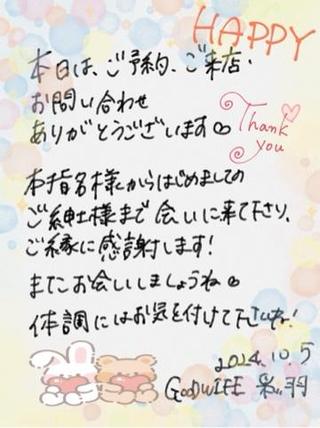 HAPPY
本日は、ご予約、ご来店・
お問い合わせ
ありがとうございます♡
Thank
you
本指名様からはじめましての
ご紳士様まで会いに来て下さり、
ご縁に感謝します!
またお会いしましょうね♡
体調にはお気を付けて下さいね!
2024.10.5
GOODWIFE 彩羽